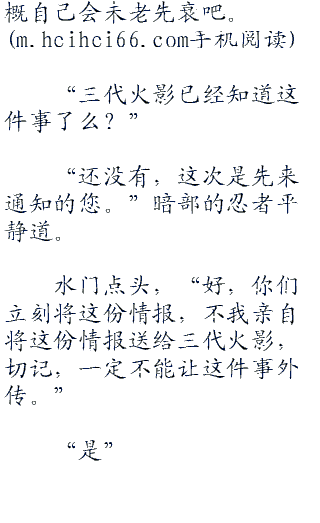 概自己会未老先衰吧。
(m.hcihci66.com手机阅读)
“三代火影已经知道这
件事了么？”
“还没有，这次是先来
通知的您。”暗部的忍者平
静道。
水门点头，“好，你们
立刻将这份情报，不我亲自
将这份情报送给三代火影，
切记，一定不能让这件事外
传。”
“是”